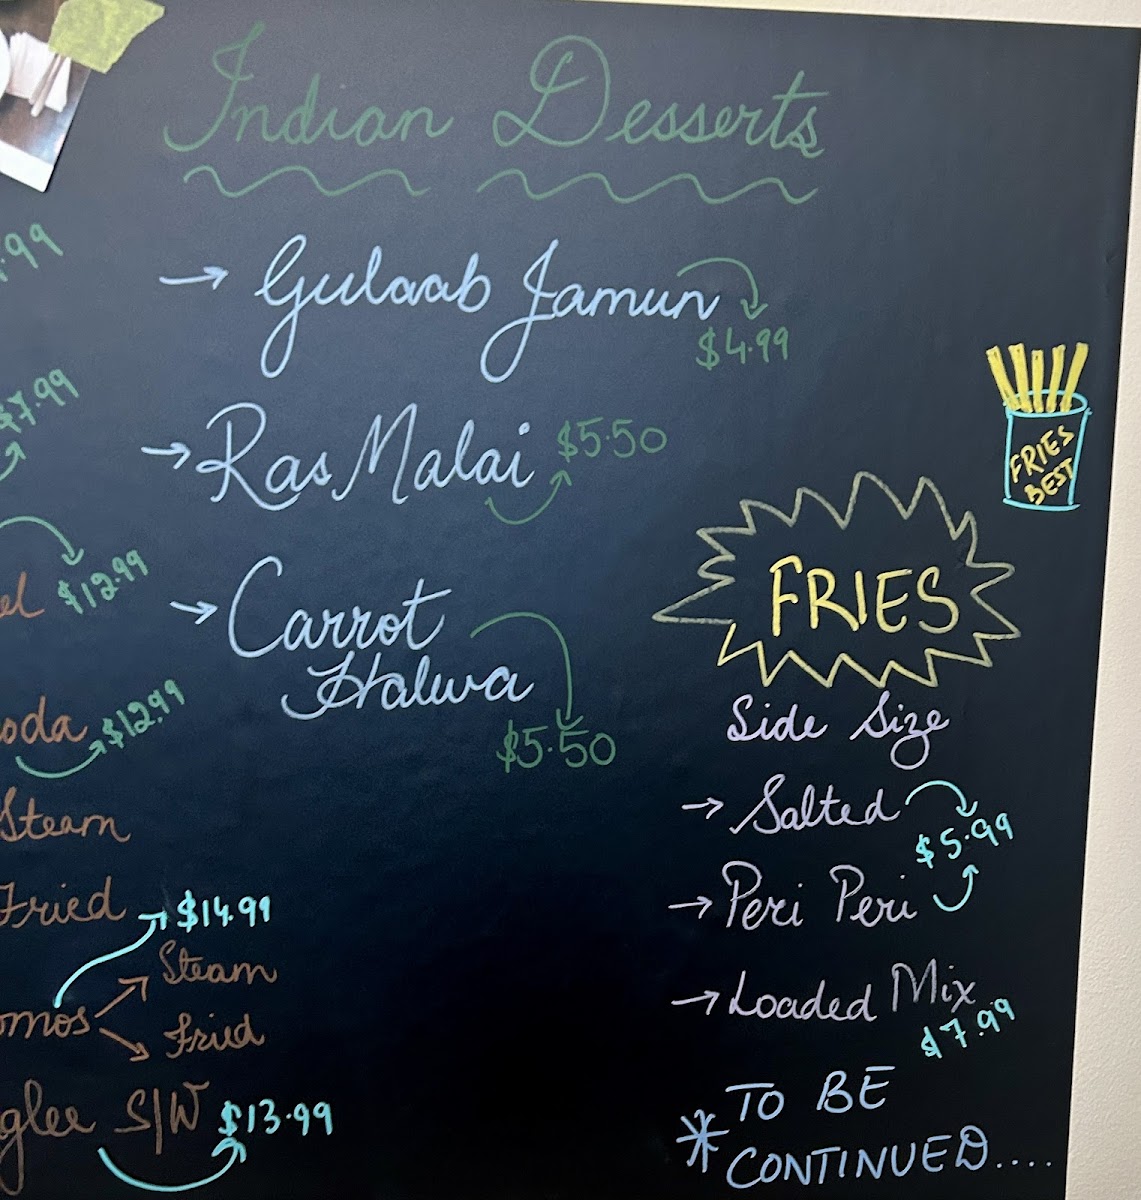 Indian Desserts
→ Gulaab Jamun
$4.99
→ Ras Malai $5.50
→ Carrot
Halwa
$5.50
FRIES
BEST
FRIES
Side Size
→ Salted
$5.99
→ Peri Peri
→ Loaded Mix
$7.99
* TO BE
CONTINUED....
.99
$7.99
el $12.99
oda $12.99
Steam
Fried
$14.99
omos
Steam
Fried
glee S/W $13.99